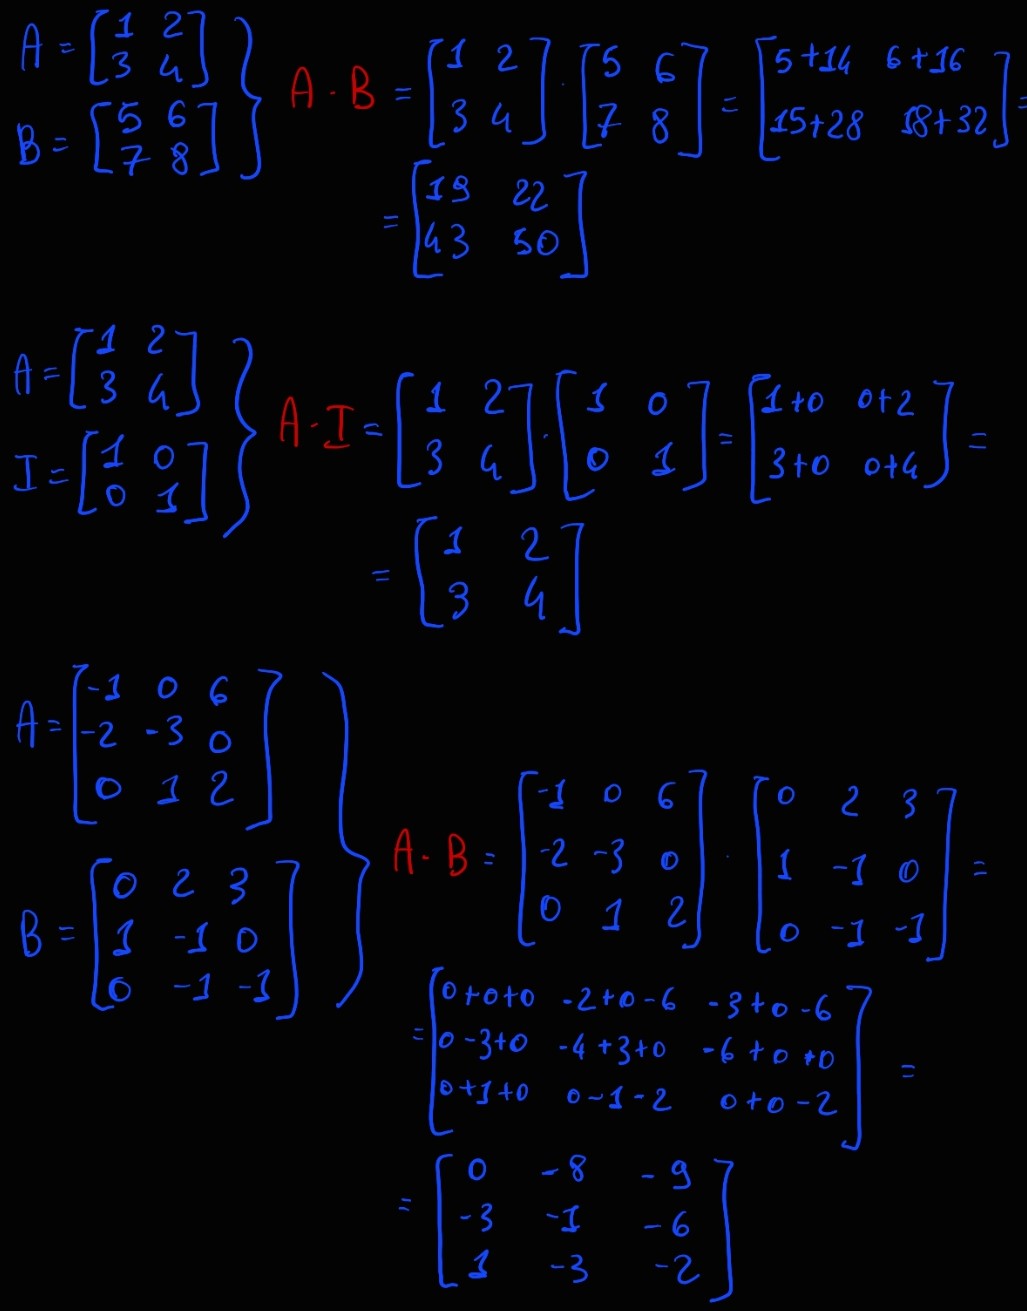 A = [1 2
3 4]
B = [5 6
7 8]
A · B = [1 2
3 4] · [5 6
7 8] = [5+14 6+16
15+28 18+32] =
= [19 22
43 50]
A = [1 2
3 4]
I = [1 0
0 1]
A · I = [1 2
3 4] · [1 0
0 1] = [1+0 0+2
3+0 0+4] =
= [1 2
3 4]
A = [-1 0 6
-2 -3 0
0 1 2]
B = [0 2 3
1 -1 0
0 -1 -1]
A · B = [-1 0 6
-2 -3 0
0 1 2] · [0 2 3
1 -1 0
0 -1 -1] =
= [0+0+0 -2+0-6 -3+0-6
0-3+0 -4+3+0 -6+0+0
0+1+0 0-1-2 0+0-2] =
= [0 -8 -9
-3 -1 -6
1 -3 -2]